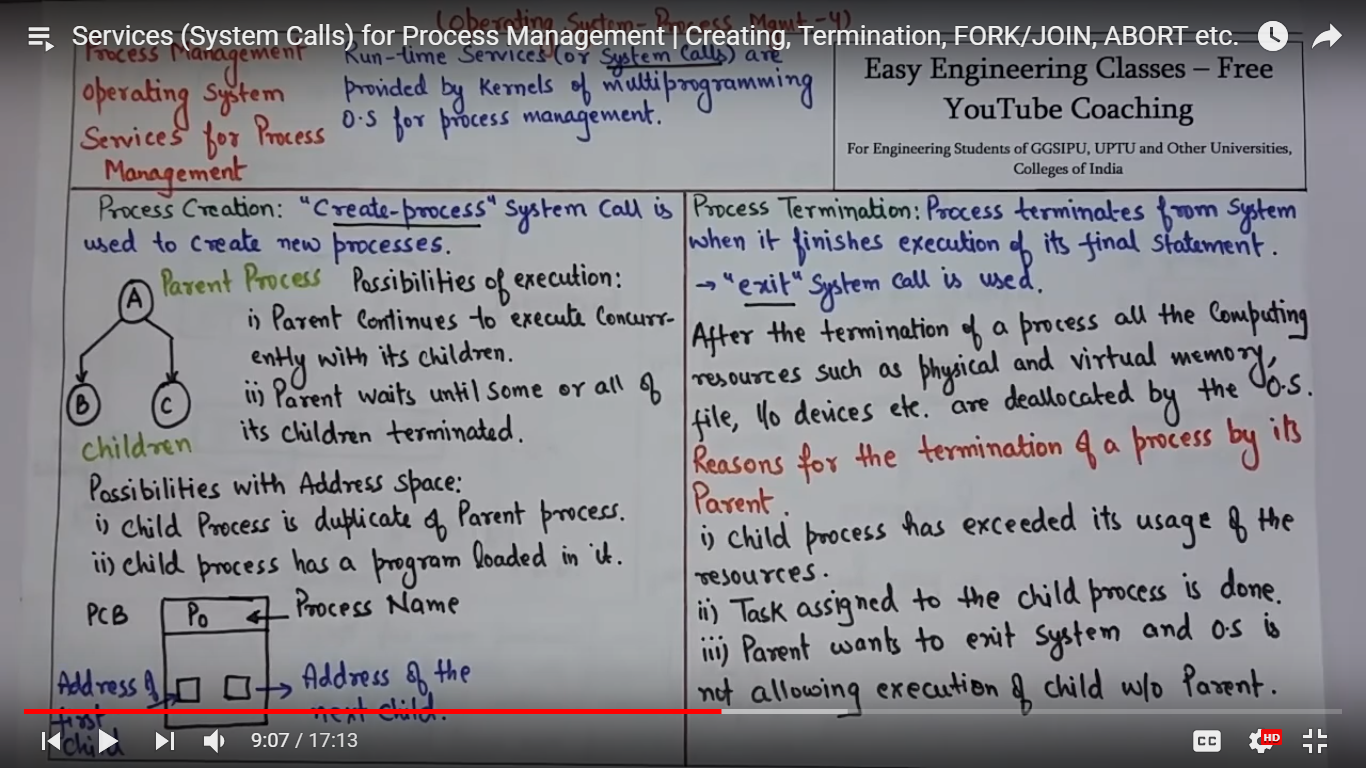 (Operating System- Process Mgmt -4)
Services (System Calls) for Process Management | Creating, Termination, FORK/JOIN, ABORT etc.
Process Management
Operating System
Services for Process
Management
Run-time Services (or System Calls) are
provided by Kernels of multiprogramming
O.S for process management.
Easy Engineering Classes – Free
YouTube Coaching
For Engineering Students of GGSIPU, UPTU and Other Universities,
Colleges of India
Process Creation: "Create-process" System Call is
used to create new processes.
A
Parent Process
B
C
Children
Possibilities of execution:
i) Parent Continues to execute Concurr-
ently with its children.
ii) Parent waits until some or all of
its children terminated.
Possibilities with Address space:
i) child Process is duplicate of Parent process.
ii) child process has a program loaded in it.
PCB
P0
Process Name
Address of
first
child
Address of the
next child.
Process Termination: Process terminates from System
when it finishes execution of its final statement.
→ "exit" System call is used.
After the termination of a process all the Computing
resources such as physical and virtual memory,
file, I/o devices etc. are deallocated by the O.S.
Reasons for the termination of a process by its
Parent.
i) child process has exceeded its usage of the
resources.
ii) Task assigned to the child process is done.
iii) Parent wants to exit System and O.S is
not allowing execution of child w/o Parent.
9:07 / 17:13
CC
HD